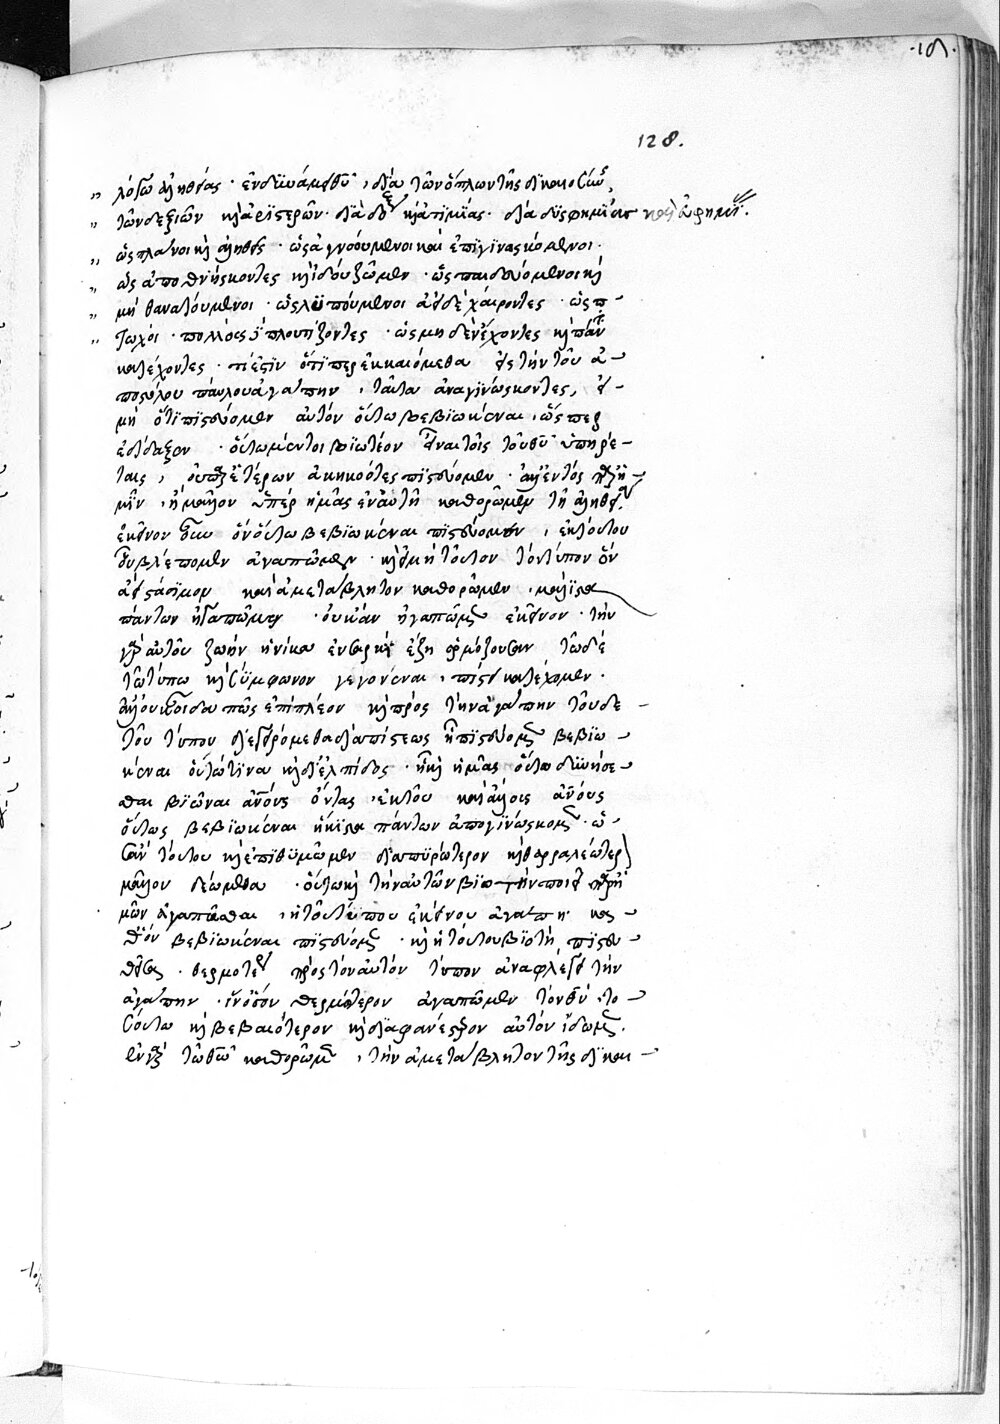 128.
λόγω ἀληθείας · ἐν δυνάμει θυ, διὰ τῶν ὅπλων τῆς δικαιοσύνης
τῶν δεξιῶν καὶ ἀριστερῶν · διὰ δόξης καὶ ἀτιμίας · διὰ δυσφημίας καὶ εὐφημίας ·
ὡς πλάνοι καὶ ἀληθεῖς · ὡς ἀγνοούμενοι καὶ ἐπιγινωσκόμενοι ·
ὡς ἀποθνήσκοντες καὶ ἰδοὺ ζῶμεν · ὡς παιδευόμενοι καὶ
μὴ θανατούμενοι · ὡς λυπούμενοι ἀεὶ δὲ χαίροντες · ὡς π
τωχοὶ · πολλοὺς δὲ πλουτίζοντες · ὡς μηδὲν ἔχοντες καὶ πάντα
κατέχοντες · τί ἐστιν ὅτιπερ ἐκκαιόμεθα εἰς τὴν τοῦ ἀ
ποστόλου παύλου ἀγάπην, ταῦτα ἀναγινώσκοντες, εἰ
μὴ ὅτι πιστεύομεν αὐτὸν οὕτω βεβιωκέναι · ὥσπερ
ἐδίδαξεν · οὕτω μέντοι βιωτέον εἶναι τοῖς τοῦ θυ ὑπηρέ
ταις, οὐ παρ' ἑτέρων ἀκηκοότες πιστεύομεν · ἀλλ' ἐντὸς παρ' ἡ
μῖν, ἢ μᾶλλον ὑπὲρ ἡμᾶς ἐν αὐτῇ καθορῶμεν τῇ ἀληθείᾳ ·
ἐκεῖνον ὃν οὕτω βεβιωκέναι πιστεύομεν, ἐκ τούτου
οὗ βλέπομεν ἀγαπῶμεν · καὶ εἰ μὴ τοῦτον τὸν τύπον ὃν
ἀεὶ στάσιμον καὶ ἀμετάβλητον καθορῶμεν · μάλιστα
πάντων ἠγαπῶμεν · οὐκ ἂν ἠγαπῶμεν ἐκεῖνον · τὴν
γὰρ αὐτοῦ ζωὴν ἡνίκα ἐν σαρκὶ ἔζη ἁρμόζουσαν τῶδε
τῶ τύπω καὶ σύμφωνον γεγονέναι, πίστει κατέχομεν ·
ἀλλ' οὐκ οἶδα πῶς ἐπιπλέον καὶ πρὸς τὴν ἀγάπην τοῦδε
τοῦ τύπου διεγειρόμεθα διὰ πίστεως ᾗ πιστεύομεν βεβιω
κέναι οὕτω τινὰ καὶ δι' ἐλπίδος · ᾗ καὶ ἡμᾶς οὕτω δυνήσε
σθαι βιῶναι ἀνους ὄντας · ἐκ τοῦ καὶ ἄλλους ἀνους
οὕτως βεβιωκέναι ἥκιστα πάντων ἀπογινώσκομεν · ὡ
σὰν τούτου καὶ ἐπιθυμῶμεν διαπυρώτερον καὶ θαρραλεώτερον
μᾶλλον δεώμεθα · οὕτω καὶ τὴν αὐτῶν βιωτὴν ποιεῖ παρ' ἡ
μῶν ἀγαπᾶσθαι, ἡ τοῦ τύπου ἐκείνου ἀγάπη · καθ'
ὃν βεβιωκέναι πιστεύομεν · καὶ ἡ τούτου βιοτὴ πιστευ
θεῖσα · θερμοτέραν πρὸς τὸν αὐτὸν τύπον ἀναφλέγει τὴν
ἀγάπην · ἵν' ὅσον θερμότερον ἀγαπῶμεν τὸν θν · το
σούτω καὶ βεβαιότερον καὶ διαφανέστερον αὐτὸν ἴδωμεν ·
ἐν γὰρ τῶ θω καθορῶμεν, τὴν ἀμετάβλητον τῆς δικαι